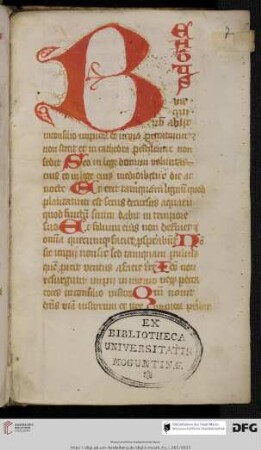 BEATUS
vir
qui
non abiit
in consilio impiorum et in via peccatorum
non stetit et in cathedra pestilentie non
sedit Sed in lege domini voluntas
eius et in lege eius meditabitur die ac
nocte Et erit tamquam lignum quod
plantatum est secus decursus aquarum
quod fructum suum dabit in tempore
suo Et folium eius non defluet et
omnia quecumque faciet prosperabuntur Non
sic impii non sic sed tamquam pulvis
quem proicit ventus a facie terre Ideo non
resurgunt impii in iudicio neque pecca
tores in consilio iustorum Quoniam novit
dominus viam iustorum et iter impiorum peribit
EX
BIBLIOTHECA
UNIVERSITATIS
MOGUNTINÆ
DFG